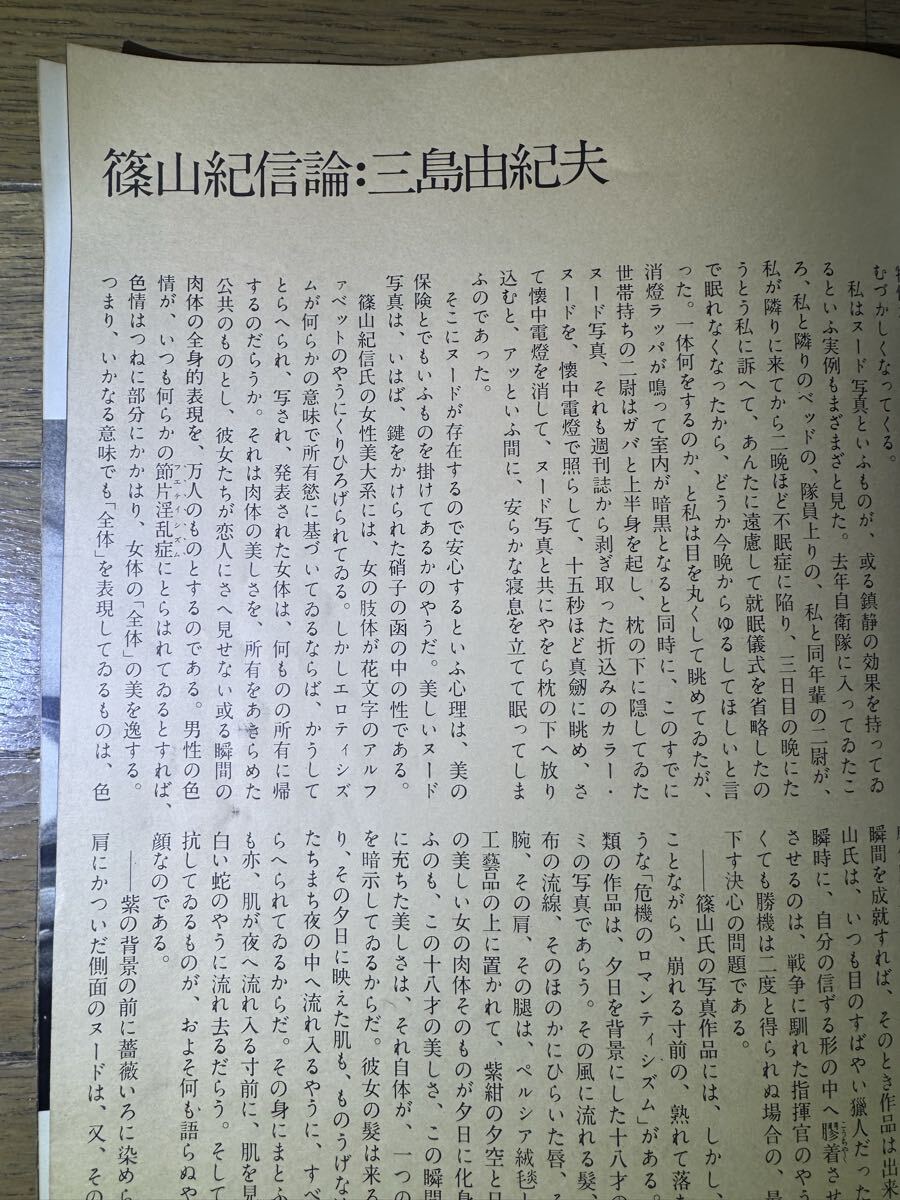 篠山紀信論:三島由紀夫
むづかしくなってくる。
私はヌード写真といふものが、或る鎮静の効果を持ってゐ
るといふ実例もまざまざと見た。去年自衛隊に入ってゐたこ
ろ、私と隣りのベッドの、隊員上りの、私と同年輩の二尉が、
私が隣りに来てから二晩ほど不眠症に陥り、三日目の晩にた
うとう私に訴へて、あんたに遠慮して就眠儀式を省略したの
で眠れなくなったから、どうか今晩からゆるしてほしいと言
った。一体何をするのか、と私は目を丸くして眺めてゐたが、
消燈ラッパが鳴って室内が暗黒となると同時に、このすでに
世帯持ちの二尉はガバと上半身を起し、枕の下に隠してゐた
ヌード写真、それも週刊誌から剥ぎ取った折込みのカラー・
ヌードを、懐中電燈で照らして、十五秒ほど真劔に眺め、さ
て懐中電燈を消して、ヌード写真と共にやをら枕の下へ放り
込むと、アッといふ間に、安らかな寝息を立てて眠ってしま
ふのであった。
そこにヌードが存在するので安心するといふ心理は、美の
保険とでもいふものを掛けてあるかのやうだ。美しいヌード
写真は、いはば、鍵をかけられた硝子の函の中の性である。
篠山紀信氏の女性美大系には、女の肢体が花文字のアルフ
ァベットのやうにくりひろげられてゐる。しかしエロティシズ
ムが何らかの意味で所有慾に基づいてゐるならば、かうして
とらへられ、写され、発表された女体は、何ものの所有に帰
するのだらうか。それは肉体の美しさを、所有をあきらめた
公共のものとし、彼女たちが恋人にさへ見せない或る瞬間の
肉体の全身的表現を、万人のものとするのである。男性の色
情が、いつも何らかの節片淫乱症にとらはれてゐるとすれば、
フエテイシズム
色情はつねに部分にかかはり、女体の「全体」の美を逸する。
つまり、いかなる意味でも「全体」を表現してゐるものは、色
瞬間を成就すれば、そのとき作品は出来
山氏は、いつも目のすばやい猟人だった
瞬時に、自分の信ずる形の中へ膠着させ
こうちやく
させるのは、戦争に馴れた指揮官のやう
くても勝機は二度と得られぬ場合の、
下す決心の問題である。
――篠山氏の写真作品には、しかし、
ことながら、崩れる寸前の、熟れて落
うな「危機のロマンティシズム」がある。
類の作品は、夕日を背景にした十八才の
ミの写真であらう。その風に流れる髪、
布の流線、そのほのかにひらいた唇、そ
腕、その肩、その腿は、ペルシア絨毯
工藝品の上に置かれて、紫紺の夕空と
の美しい女の肉体そのものが夕日に化身
ふのも、この十八才の美しさ、この瞬間
に充ちた美しさは、それ自体が、一つの
を暗示してゐるからだ。彼女の髪は来る
り、その夕日に映えた肌も、ものうげな
たちまち夜の中へ流れ入るやうに、すべ
らへられてゐるからだ。その身にまとふ
も亦、肌が夜へ流れ入る寸前に、肌を見
白い蛇のやうに流れ去るだらう。そして
抗してゐるものが、およそ何も語らぬや
顔なのである。
――紫の背景の前に薔薇いろに染めら
肩にかついだ側面のヌードは、又、その